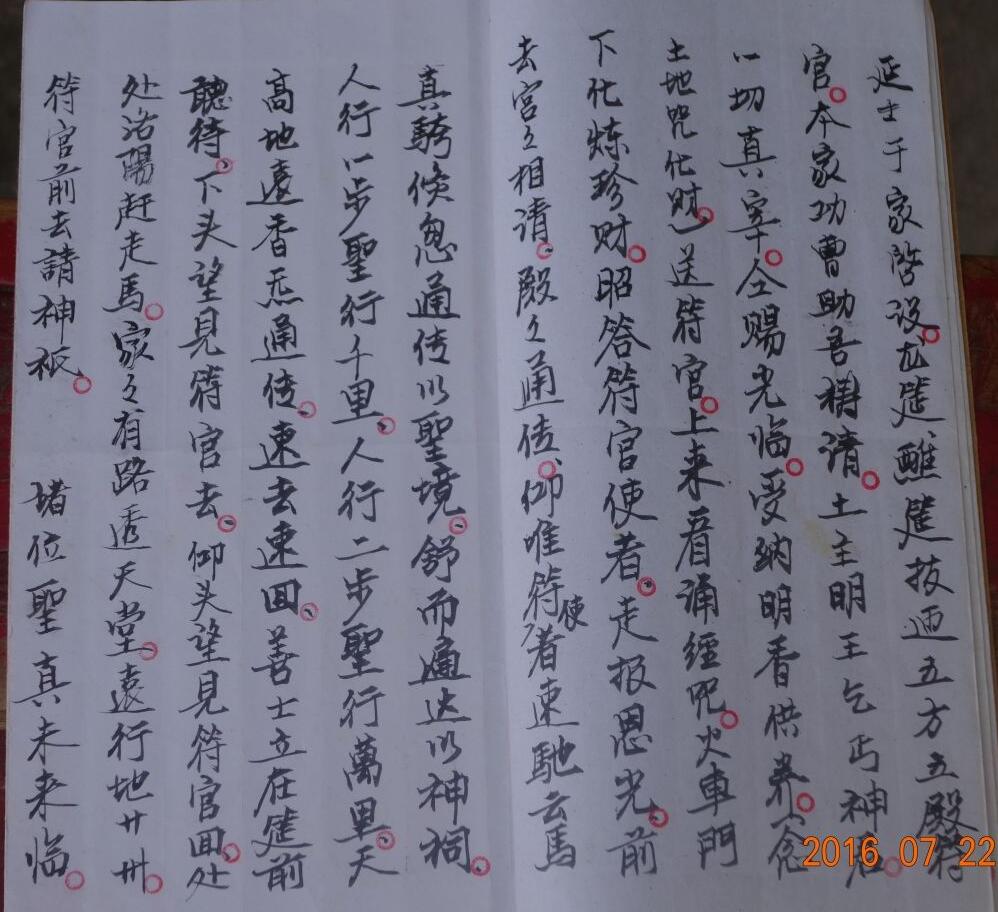 延士于家啓设。尤筵醮筵拔迊五方五殿符
官。本家功曹助吾樹请。土主明王乞丐神君。
一切真宰。仝赐光临。受纳明香供养。念
土地咒化财。送符官。上来看诵經咒。火車門
下化炼珍财。昭答符官使者。走报恩光。前
去宫之相请。殿之通传。仰唯符使者速馳云馬
真騎倏忽通传以聖境。舒而通达以神祠。
人行一步聖行千里。人行二步聖行萬里。天
高地遠香炁通传。速去速回。善士立在筵前
聽待。下头望見符官去。仰头望見符官回。处
处洛陽赶走馬。家之有路透天堂。遠行地廿卅。
符官前去請神祇。堵位聖真未来临。
2016 07 22